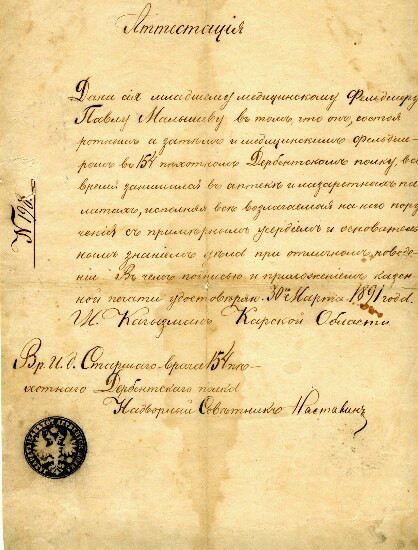 Аттестацiя
Дана сiя младшему медицинскому Фельдшеру
Павлу Малышеву въ томъ, что онъ, состоя
ротнымъ а затемъ и медицинскимъ фельдше-
ромъ въ 154 пѣхотномъ Дербентскомъ полку, все
время занимался въ аптекѣ и лазаретныхъ па-
латахъ, исполняя всѣ возлагаемыя на него пору-
ченiя съ примѣрнымъ усердiемъ и основатель-
нымъ знанiемъ дѣла при отличномъ поведе-
нiи. Въ чемъ подписью и приложенiемъ казен-
ной печати удостовѣряю. 30го Марта 1891 года.
Ш. Кагызманъ Карской Области
№ 198.
Вр. И. д. Старшаго врача 154 пѣ-
хотнаго Дербентскаго полка
Надворный Совѣтникъ